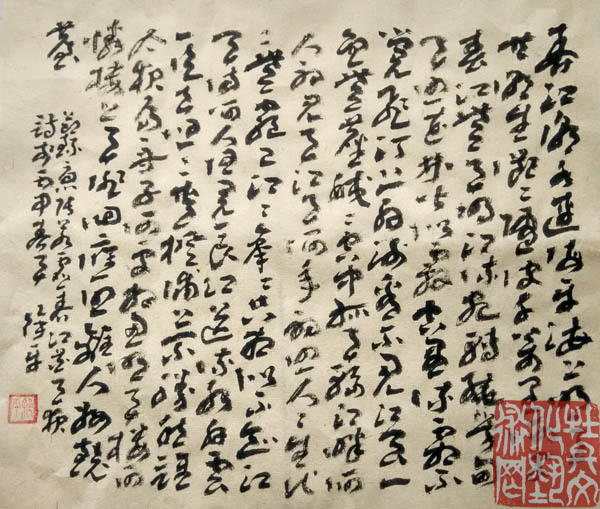 春江潮水連海平海上明月
共潮生灩二隨波千萬里何處
春江無月明江流宛轉繞芳甸
月照花林皆似霰空里流霜不
覺飛汀上白沙看不見江天一
色無纖塵皎二空中孤月輪江畔何
人初見月江月何年初照人人生代
二無窮已江月年二只相似不知江
月待何人但見長江送流水白雲
一片去悠二青楓浦上不勝愁誰
家今夜扁舟子何處相思明月樓可
憐樓上月徘徊應離人妝鏡
臺
節錄唐張若虛春江花月夜
詩句丙申春